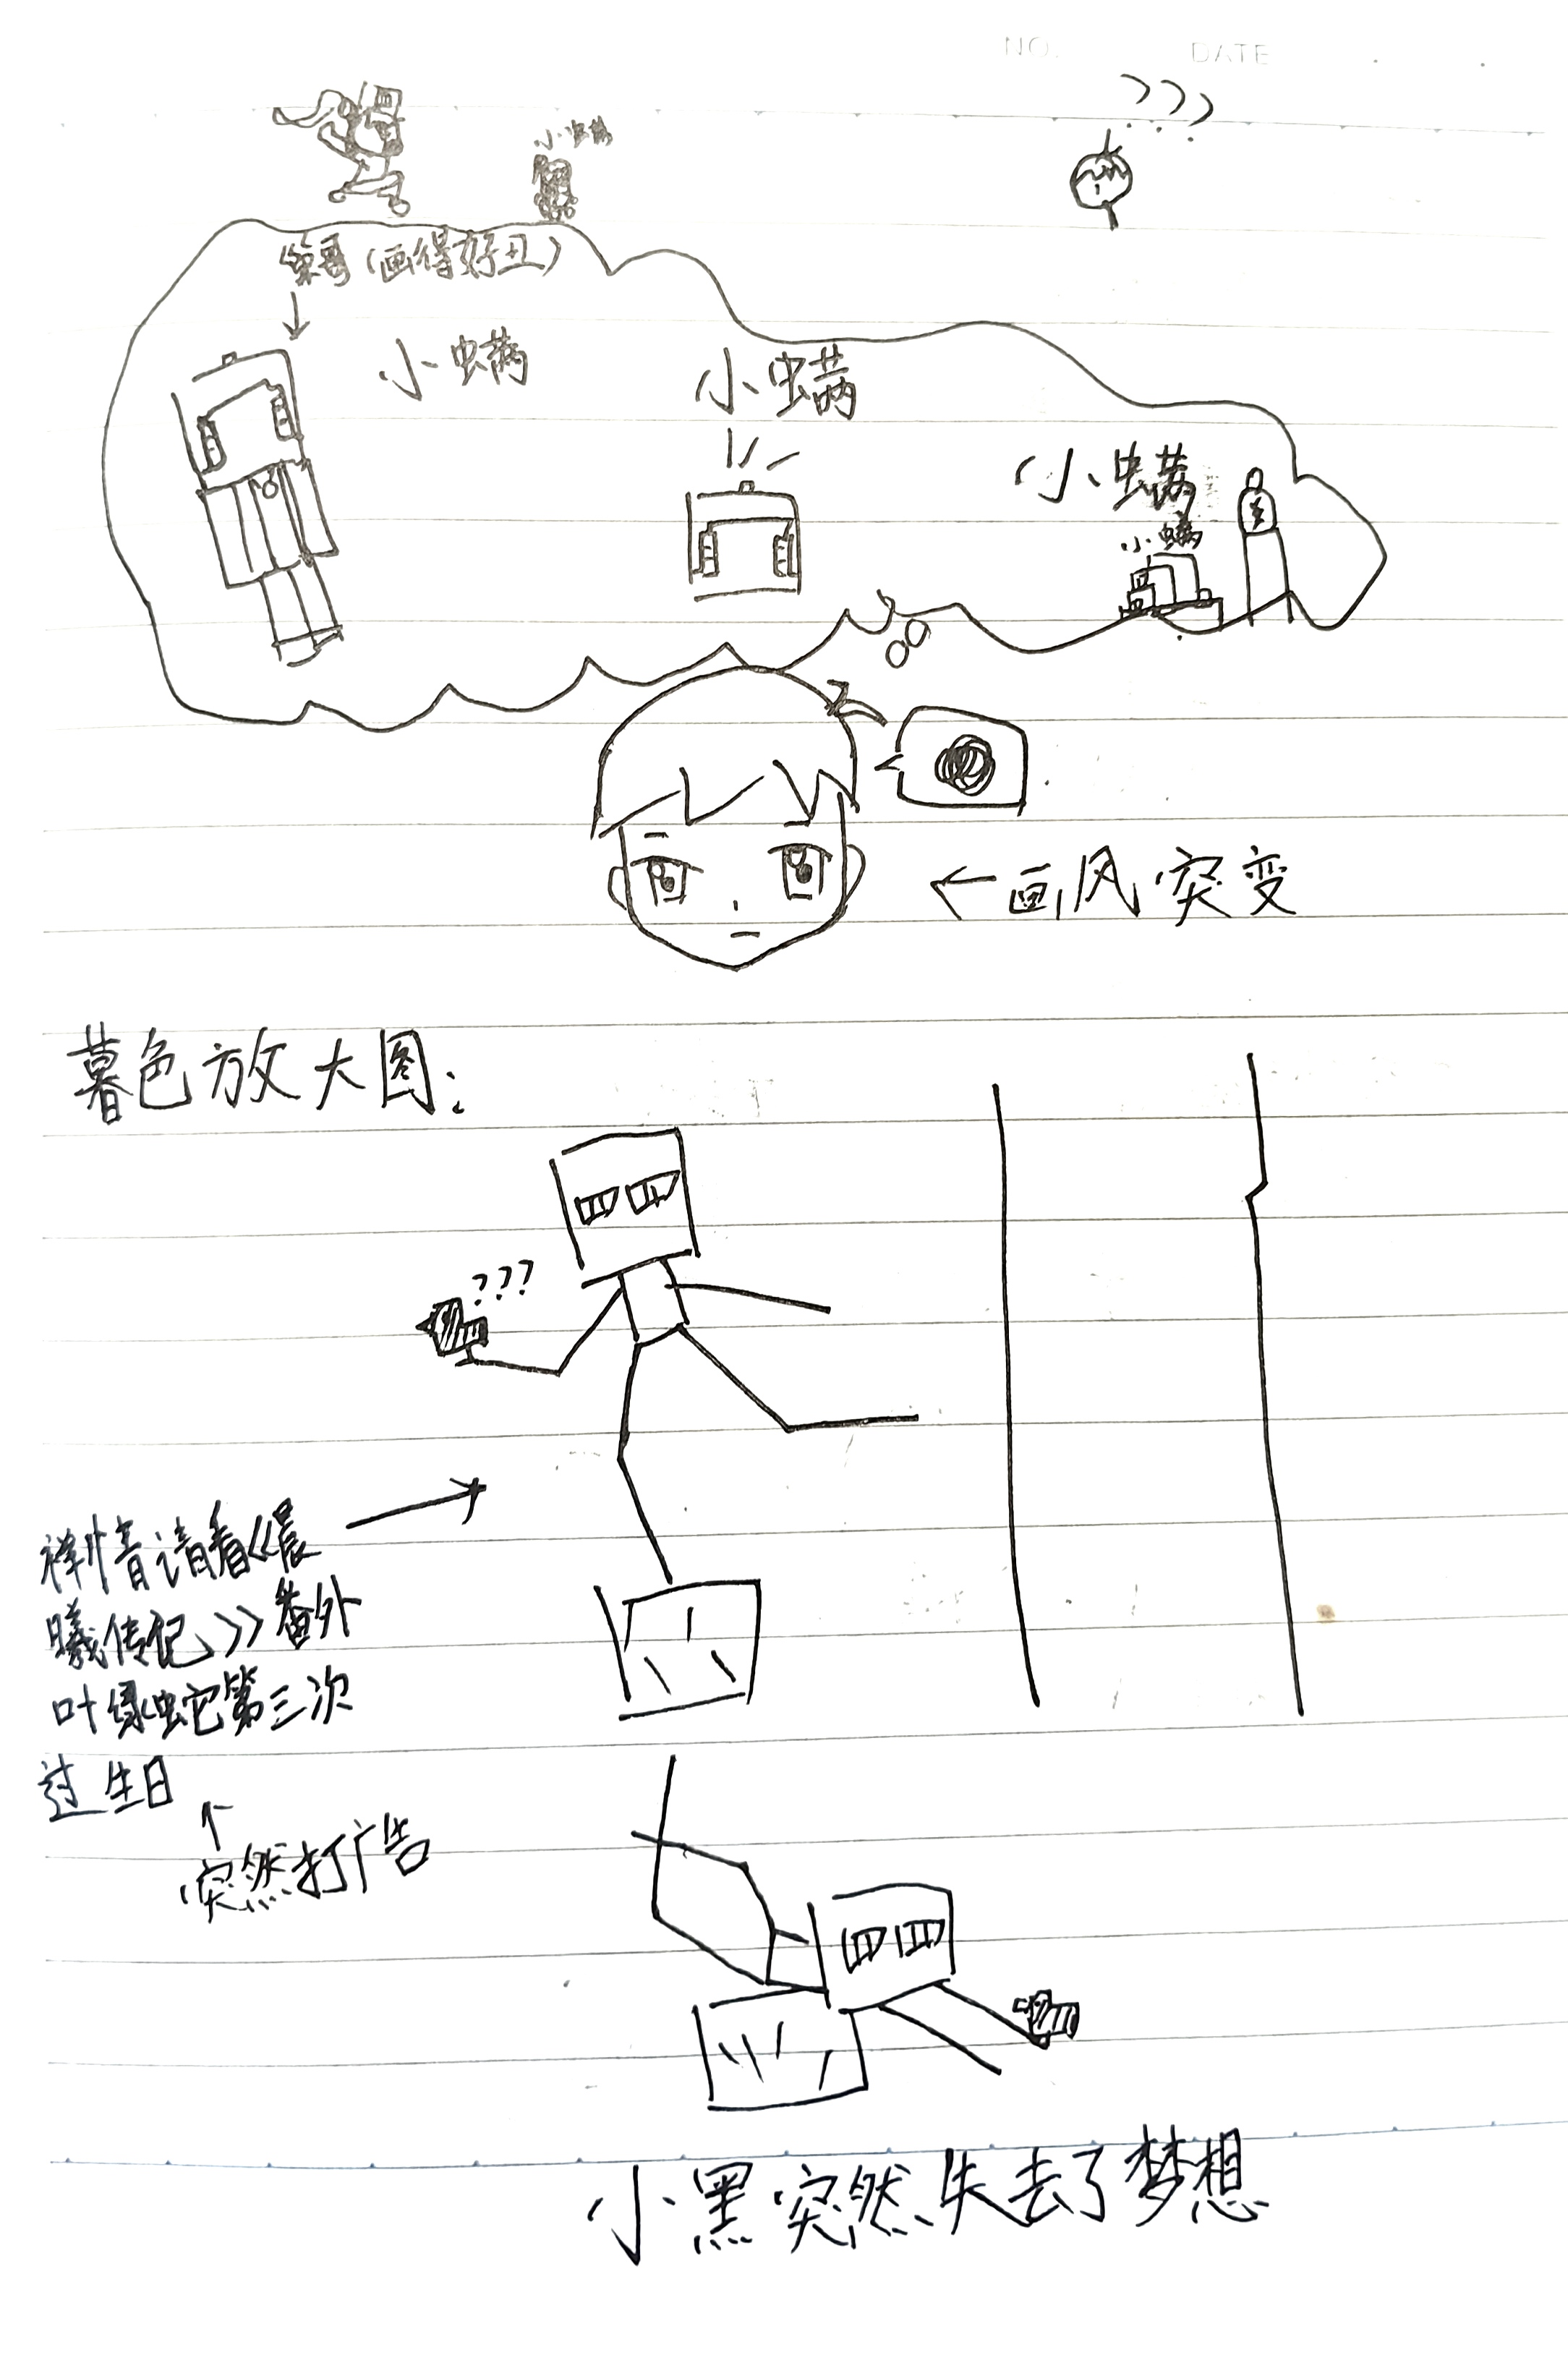 NO.
DATE
小螨
哥(画得好丑)
小螨
小螨
小螨
小螨
←画风突变
暮色放大图:
???
详情请看《晨
曦传记》番外
叶绿蛇第三次
过生日
突然打广告
小黑突然失去了梦想